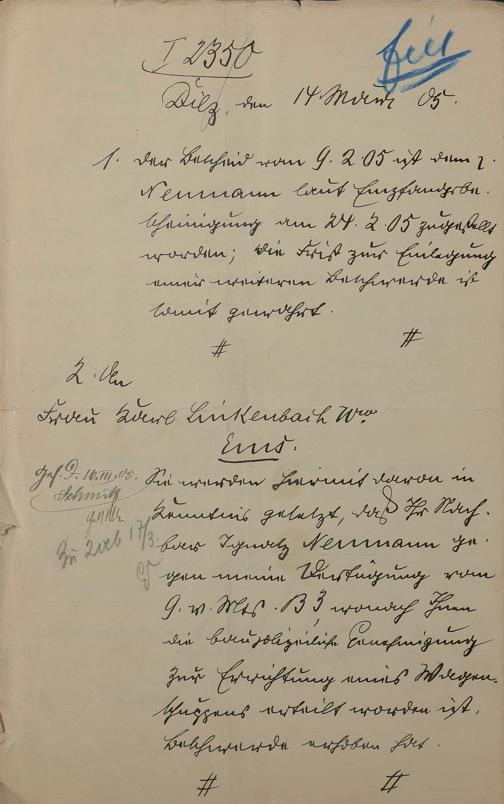 I 2350
Eilt
Diez, den 14. März 05.
1. Der Bescheid vom 9.2.05 ist dem p.
Neumann laut Empfangsbe-
scheinigung am 24.2.05 zugestellt
worden; die Frist zur Einlegung
einer weiteren Beschwerde ist
somit gewahrt.
# #
2. An
Frau Karl Linkenbach Wwe
Ems.
Sie werden hiermit davon in
Kenntnis gesetzt, daß Ihr Nach-
bar Ignatz Neumann ge-
gen meine Verfügung vom
9. v. Mts. B 3 wonach Ihnen
die baupolizeiliche Genehmigung
zur Errichtung eines Wagen-
schuppens erteilt worden ist,
Beschwerde erhoben hat.
# #
Gef. D. 16.III.05.
Schmitz
Zu 2 ab 17/3.